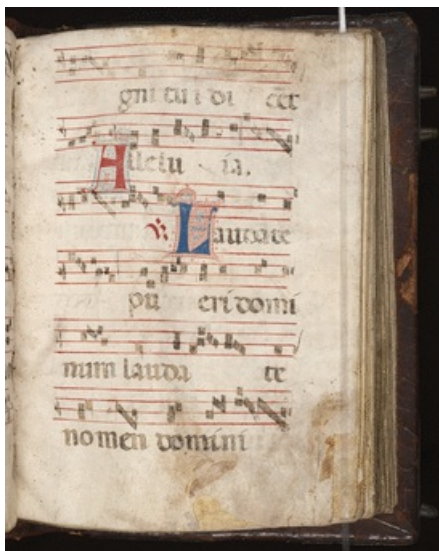 gni tui di cet
Alleluia.
℣. Laudate
pu eri domi
num lauda te
nomen domini